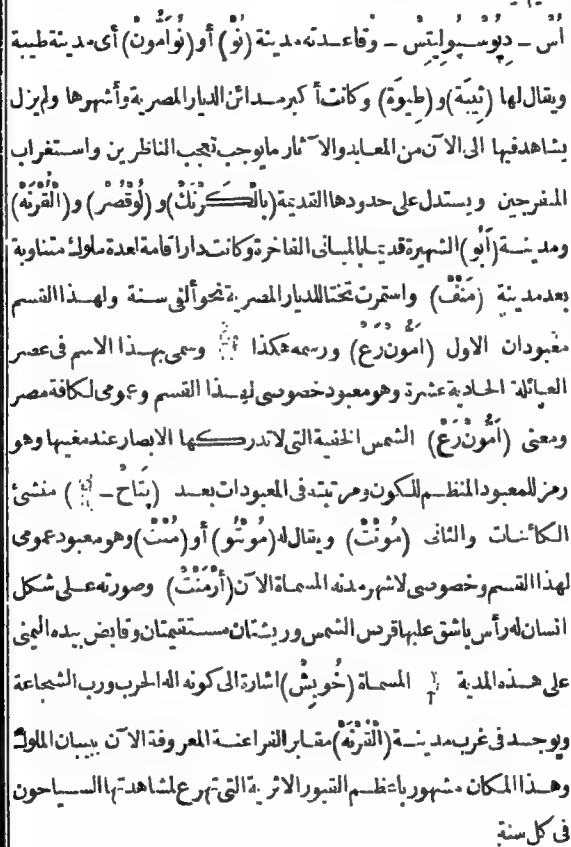 أس ـ ديوسبوليتس ـ وقاعدته مدينة (نو) أو (نوامون) أى مدينة طيبة
ويقال لها (ثيبة) و (طيوة) وكانت أكبر مدائن الديار المصرية وأشهرها ولم يزل
يشاهد فيها الى الآن من المعابد والآثار ما يوجب تعجب الناظرين واستغراب
المتفرجين ويستدل على حدودها القديمة (بالكرنك) و (لوقصر) و (القرنه)
ومدينة (آبو) الشهيرة قديما بالمبانى الفاخرة وكانت دار اقامة لعدة ملوك متناوبة
بعد مدينة (منف) واستمرت تختا للديار المصرية نحو ألفى سنة ولهذا القسم
معبودان الاول (امون رع) ورسمه هكذا وسمى بهذا الاسم فى عصر
العائلة الحادية عشرة وهو معبود خصوصى لهذا القسم وعمومى لكافة مصر
ومعنى (امون رع) الشمس الخفية التى لا تدركها الابصار عند مغيبها وهو
رمز للمعبود المنظم للكون ومرتبته فى المعبودات بعد (بتاح ـ ) منشئ
الكائنات والثانى (مونت) ويقال له (مونتو) أو (منت) وهو معبود عمومى
لهذا القسم وخصوصى لاشهر مدنه المسماة الآن (أرمنت) وصورته على شكل
انسان له رأس باشق عليها قرص الشمس وريشتان مستقيمتان وقابض بيده اليمنى
على هذه المدية المسماة (خوبش) اشارة الى كونه اله الحرب ورب الشجاعة
ويوجد فى غرب مدينة (القرنه) مقابر الفراعنة المعروفة الآن ببيبان الملوك
وهذا المكان مشهور باعظم القبور الاثرية التى تهرع لمشاهدتها السياحون
فى كل سنة